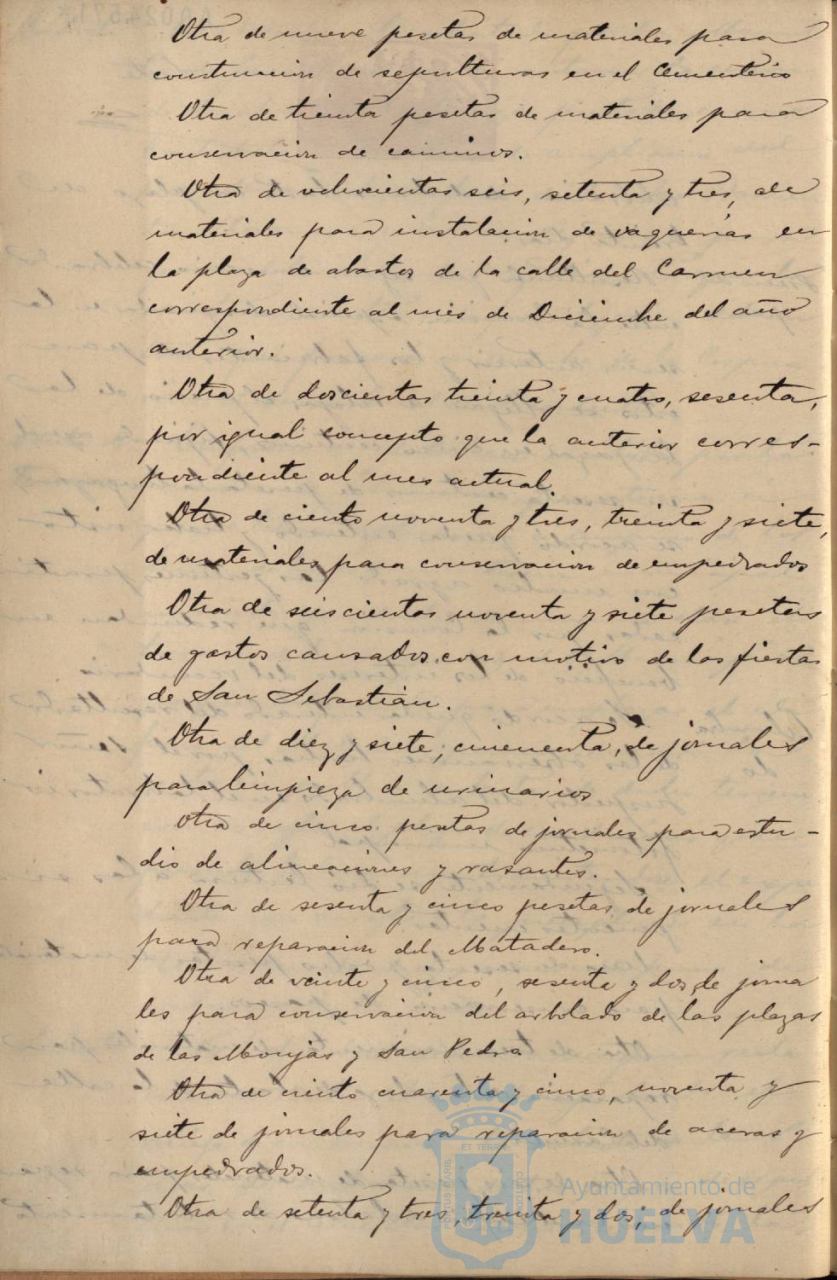 Otra de nueve pesetas de materiales para
construccion de sepulturas en el Cementerio
Otra de treinta pesetas de materiales para
conservacion de caminos.
Otra de ochocientas seis, setenta y tres, de
materiales para instalacion de vaquerias en
la plaza de abastos de la calle del Carmen
correspondiente al mes de Diciembre del año
anterior.
Otra de doscientas treinta y cuatro, sesenta,
por igual concepto que la anterior corres-
pondiente al mes actual.
Otra de ciento noventa y tres, treinta y siete,
de materiales para conservacion de empedrados
Otra de seiscientas noventa y siete pesetas
de gastos causados con motivo de las fiestas
de San Sebastian.
Otra de diez y siete, cincuenta, de jornales
para limpieza de urinarios
Otra de cinco pesetas de jornales para estu-
dio de alineaciones y rasantes.
Otra de sesenta y cinco pesetas de jornales
para reparacion del Matadero.
Otra de veinte y cinco, sesenta y dos, de jorna
les para conservacion del arbolado de las plazas
de las Monjas y San Pedro
Otra de ciento cuarenta y cinco, noventa y
siete de jornales para reparacion de aceras y
empedrados.
Otra de setenta y tres, treinta y dos, de jornales
Ayuntamiento de
HUELVA